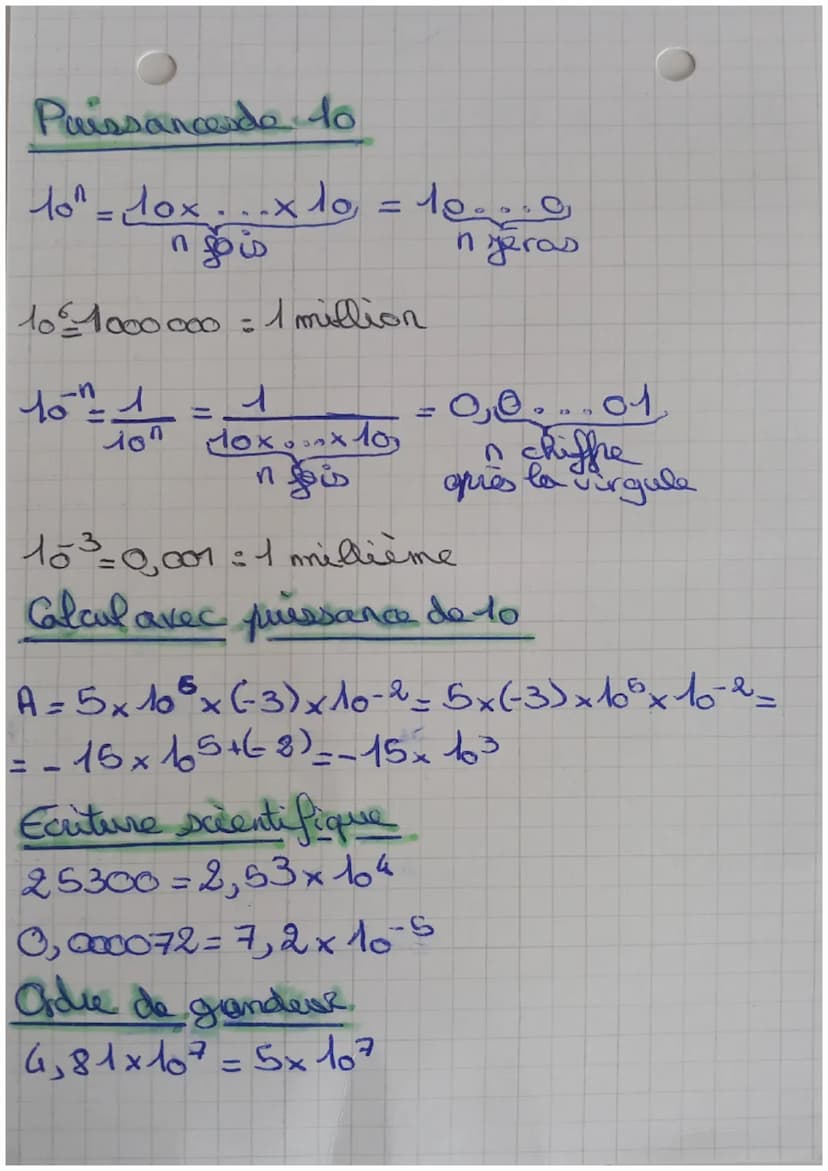 Puissances de 10
10ⁿ = 10 x ... x 10 = 10...0
n fois n zéros
10⁶ = 1000 000 = 1 million
10⁻ⁿ = 1/10ⁿ = 1/(10 x ... x 10) = 0,0....01
n fois n chiffre
après la virgule
10⁻³ = 0,001 = 1 millième
Calcul avec puissance de 10
A = 5 x 10⁵ x (-3) x 10⁻² = 5 x (-3) x 10⁵ x 10⁻² =
= - 15 x 10⁵⁺⁽⁻²⁾ = - 15 x 10³
Ecriture scientifique
25300 = 2,53 x 10⁴
0,000072 = 7,2 x 10⁻⁵
Ordre de grandeur
4,81 x 10⁷ = 5 x 10⁷